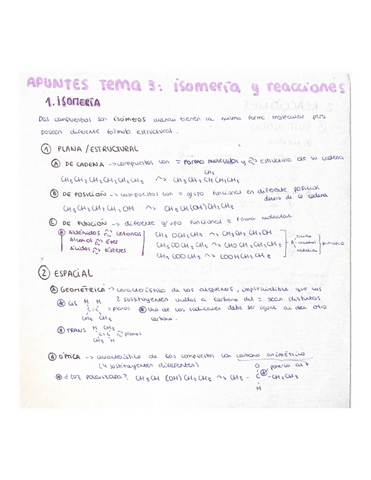 APUNTES TEMA 3: isomería y reacciones
1. ISOMERÍA
Dos compuestos son isómeros cuando tienen la misma forma molecular pero
poseen diferente fórmula estructural.
① PLANA / ESTRUCTURAL
Ⓐ DE CADENA → compuestos con = forma molecular y ≠ estructura de su cadena
CH₃
CH₃ CH₂ CH₂ CH₂ CH₃ ⤳ CH₃ CH₂ CH CH₃
Ⓑ DE POSICIÓN → compuestos con = grupo funcional en diferente posición
dentro de la cadena
CH₃ CH₂ CH₂ CH₂ OH ⤳ CH₃ CH(OH) CH₂ CH₃
Ⓒ DE FUNCIÓN → diferente grupo funcional = forma molecular
Aldehídos cetonas CH₃ OCH₂ CH₃ ⤳ CH₃ CH₂ CH₂OH
Alcohol éter CH₃ CO CH₂ CH₃ ⤳ CHO CH₂ CH₂ CH₃
Ácidos ésteres CH₃ COO CH₃ ⤳ HOOC CH₂ CH₃
② ESPACIAL
Ⓐ GEOMÉTRICA → característica de los alquenos, imprescindible que los
2 sustituyentes unidos a carbono del = sean distintos
CIS H H
C=C = planos Uno de los radicales debe ser igual al del otro
CH₃ CH₃ carbono.
TRANS H CH₃
C=C ≠ planos
CH₃ H
Ⓑ ÓPTICA → característica de los compuestos con carbono asimétrico
(4 sustituyentes diferentes)
¿luz polarizada? CH₃ CH (OH) CH₂ CH₃ ⤳ CH₃ - C - CH₂ CH₃
H